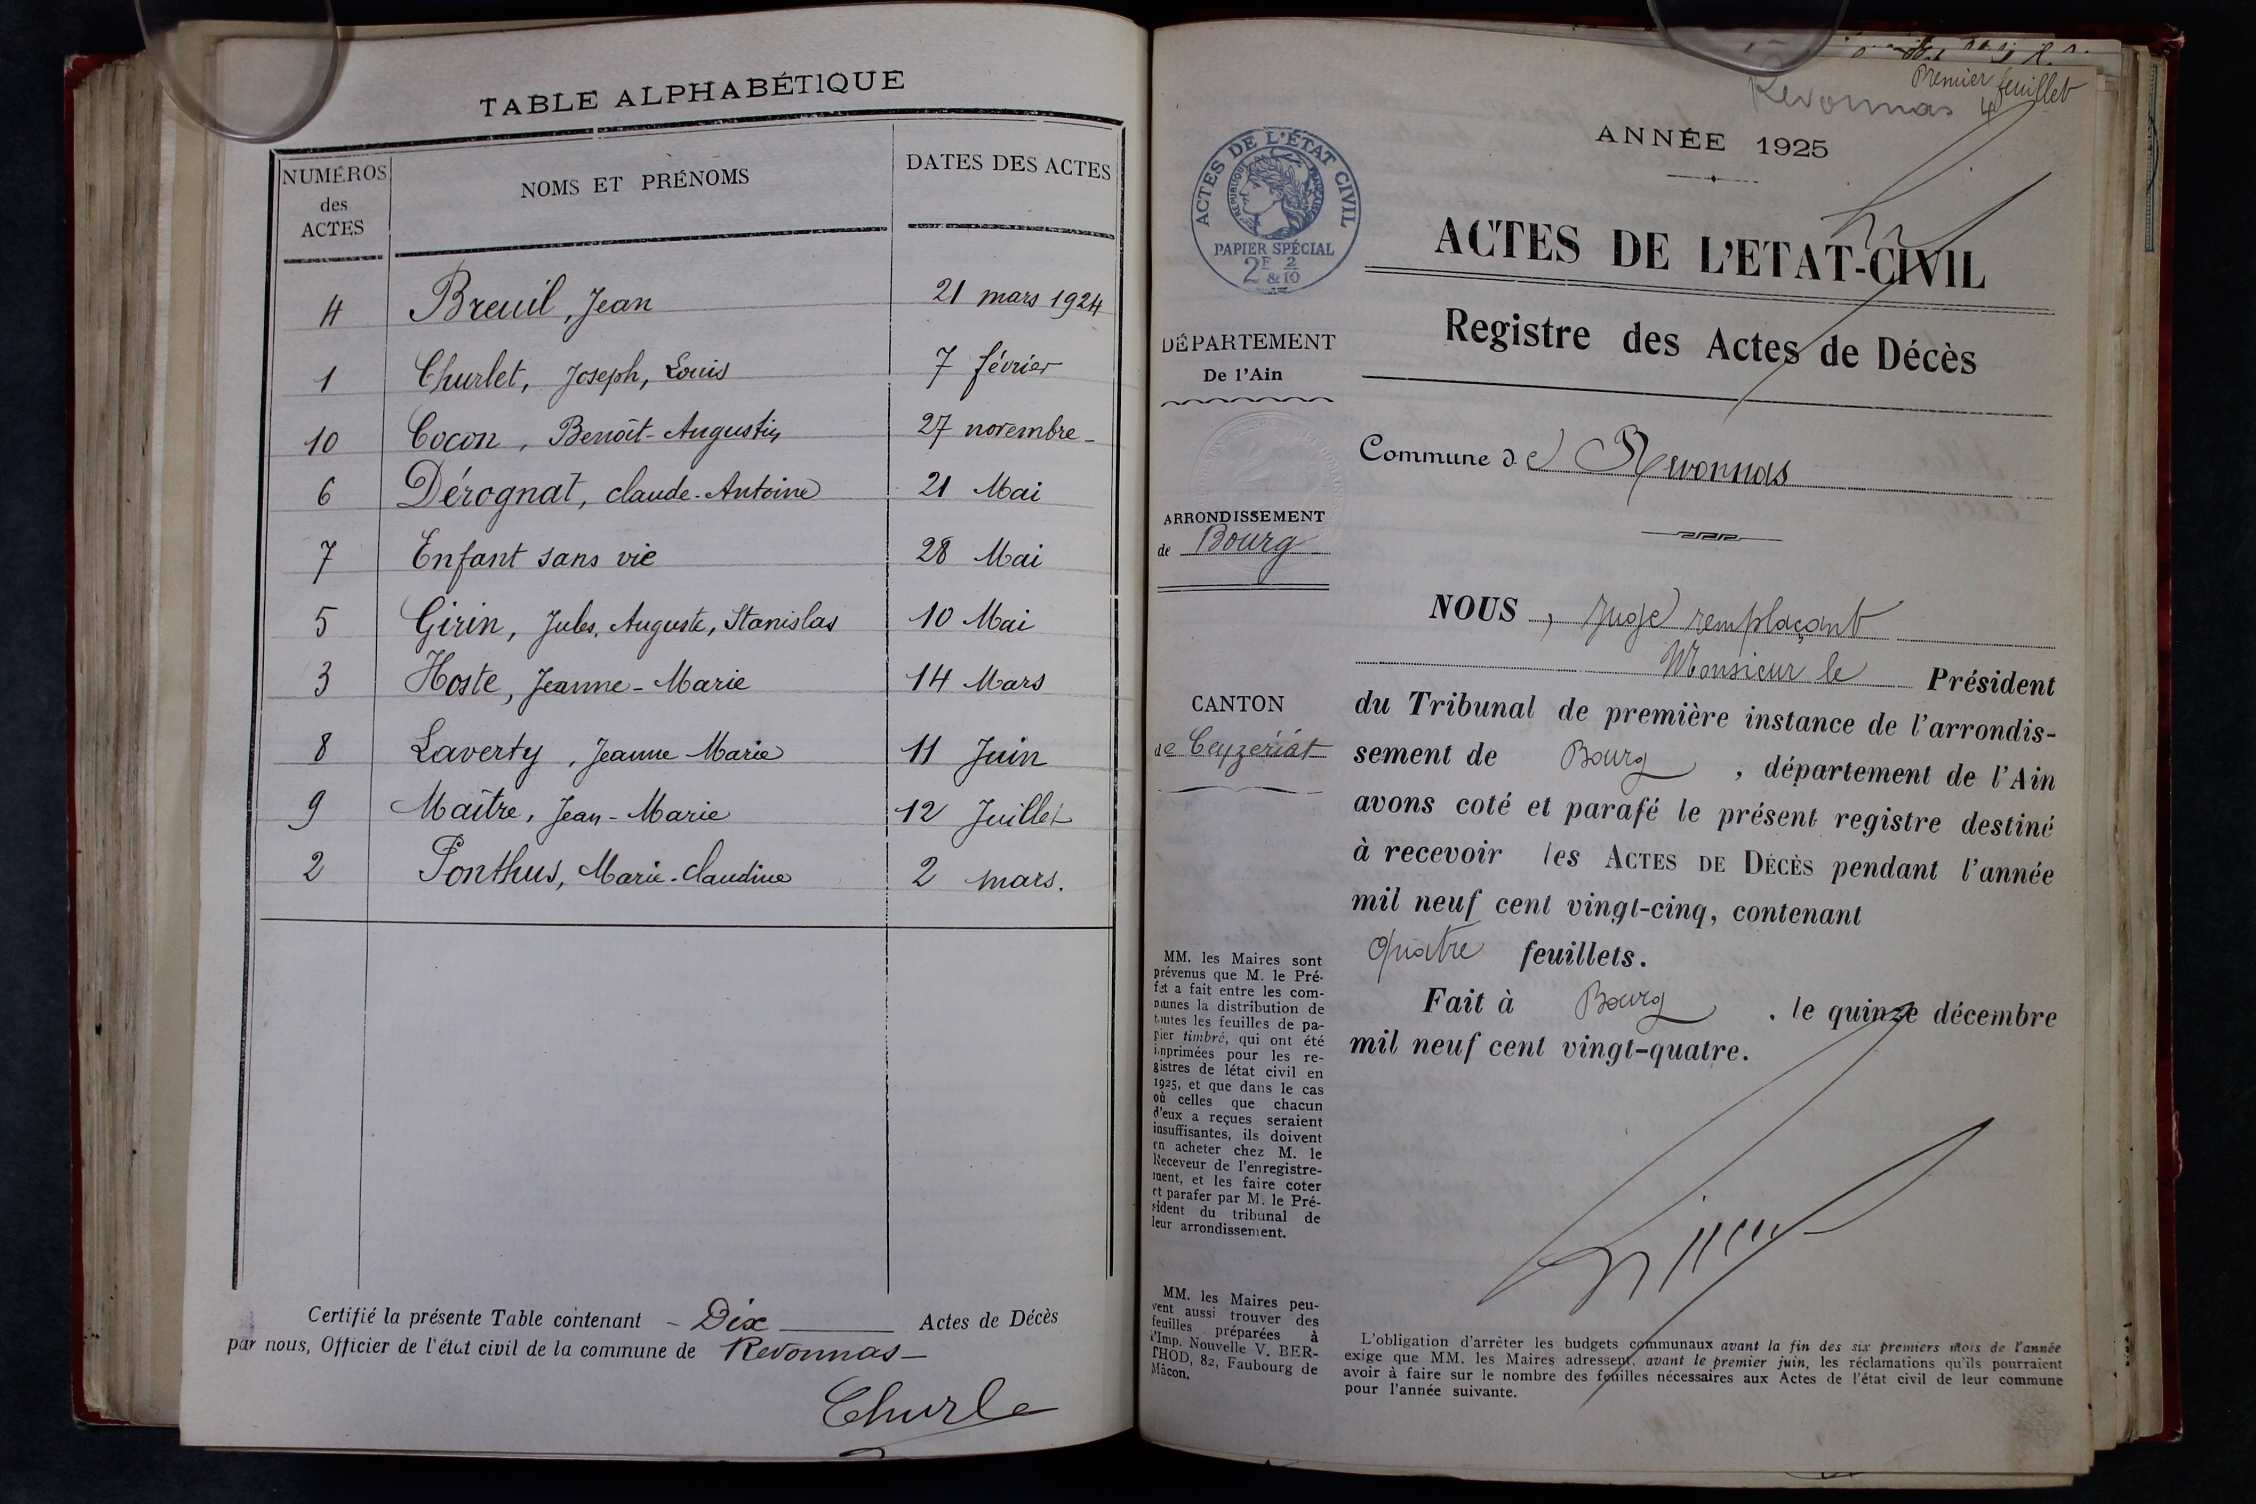 TABLE ALPHABÉTIQUE
NUMÉROS
des
ACTES
NOMS ET PRÉNOMS
DATES DES ACTES
4 Breuil, Jean 21 mars 1924
1 Churlet, Joseph, Louis 7 février
10 Cocon, Benoît-Augustin 27 novembre-
6 Dérognat, claude-Antoine 21 Mai
7 Enfant sans vie 28 Mai
5 Girin, Jules, Auguste, Stanislas 10 Mai
3 Hoste, Jeanne-Marie 14 Mars
8 Laverty, Jeanne Marie 11 Juin
9 Maître, Jean-Marie 12 Juillet
2 Ponthus, Marie-Claudine 2 mars.
Certifié la présente Table contenant - Dix Actes de Décès
par nous, Officier de l'état civil de la commune de Revonnas-
Churle
Premier feuillet
Revonnas 4
ANNÉE 1925
ACTES DE L'ÉTAT CIVIL
RÉPUBLIQUE FRANÇAISE
PAPIER SPÉCIAL
2F & 2/10
ACTES DE L'ETAT-CIVIL
Registre des Actes de Décès
DÉPARTEMENT
De l'Ain
Commune de Revonnas
ARRONDISSEMENT
de Bourg
CANTON
de Ceyzériat
NOUS, Juge remplaçant
Monsieur le Président
du Tribunal de première instance de l'arrondis-
sement de Bourg, département de l'Ain
avons coté et parafé le présent registre destiné
à recevoir les ACTES DE DÉCÈS pendant l'année
mil neuf cent vingt-cinq, contenant
quatre feuillets.
Fait à Bourg, le quinze décembre
mil neuf cent vingt-quatre.
MM. les Maires sont
prévenus que M. le Pré-
fet a fait entre les com-
munes la distribution de
toutes les feuilles de pa-
pier timbré, qui ont été
imprimées pour les re-
gistres de létat civil en
1925, et que dans le cas
où celles que chacun
d'eux a reçues seraient
insuffisantes, ils doivent
en acheter chez M. le
Receveur de l'enregistre-
ment, et les faire coter
et parafer par M. le Pré-
sident du tribunal de
leur arrondissement.
MM. les Maires peu-
vent aussi trouver des
feuilles préparées à
l'Imp. Nouvelle V. BER-
THOD, 82, Faubourg de
Mâcon.
L'obligation d'arrêter les budgets communaux avant la fin des six premiers mois de l'année
exige que MM. les Maires adressent, avant le premier juin, les réclamations qu'ils pourraient
avoir à faire sur le nombre des feuilles nécessaires aux Actes de l'état civil de leur commune
pour l'année suivante.